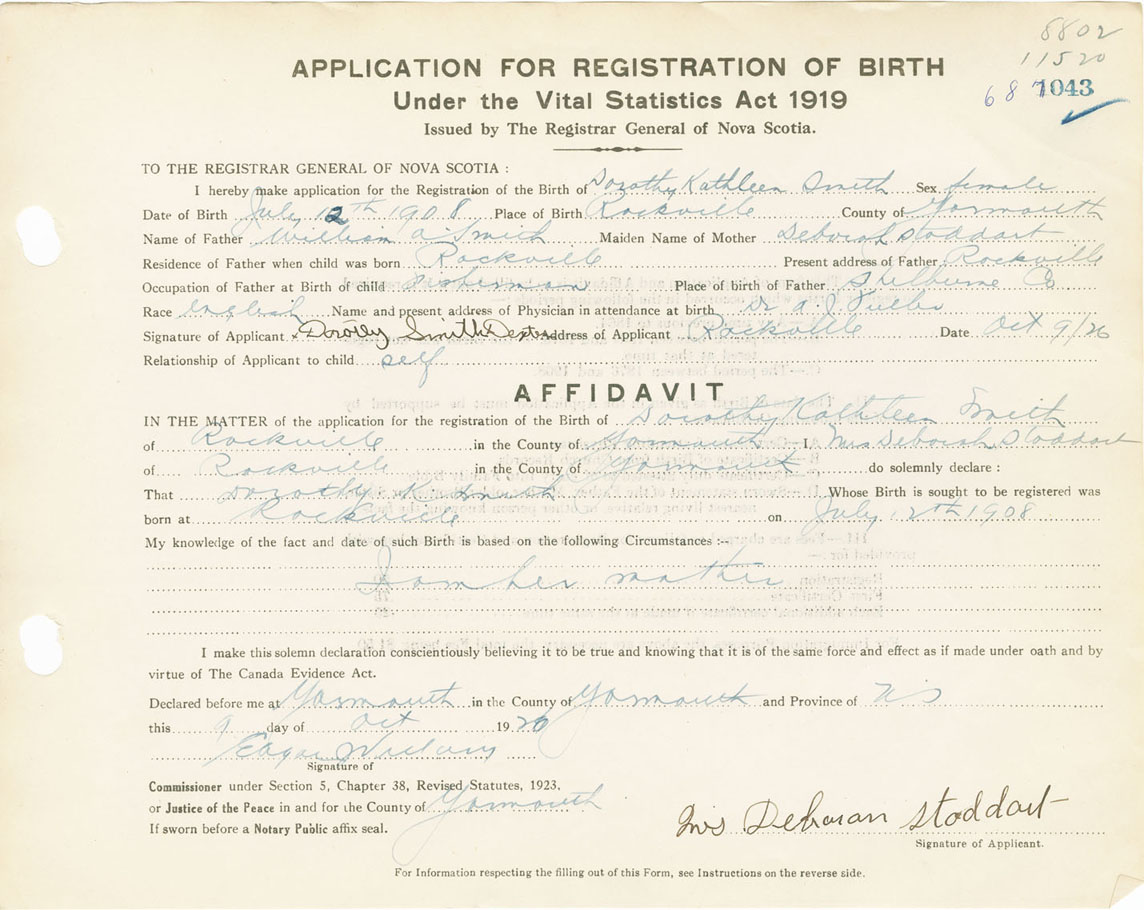 8802
11520
687 1043
APPLICATION FOR REGISTRATION OF BIRTH
Under the Vital Statistics Act 1919
Issued by The Registrar General of Nova Scotia.
TO THE REGISTRAR GENERAL OF NOVA SCOTIA :
I hereby make application for the Registration of the Birth of Dorothy Kathleen Smith Sex female
Date of Birth July 12th 1908 Place of Birth Rockville County of Yarmouth
Name of Father William A. Smith Maiden Name of Mother Deborah Stoddart
Residence of Father when child was born Rockville Present address of Father Rockville
Occupation of Father at Birth of child Fisherman Place of birth of Father Shelburne Co
Race English Name and present address of Physician in attendance at birth Dr A. J. Fuller
Signature of Applicant Dorothy Smith Dexter Address of Applicant Rockville Date Oct 9/26
Relationship of Applicant to child self
AFFIDAVIT
IN THE MATTER of the application for the registration of the Birth of Dorothy Kathleen Smith
of Rockville in the County of Yarmouth I, Mrs Deborah Stoddart
of Rockville in the County of Yarmouth do solemnly declare :
That Dorothy K. Smith Whose Birth is sought to be registered was
born at Rockville on July 12th 1908
My knowledge of the fact and date of such Birth is based on the following Circumstances :--
I am her mother
I make this solemn declaration conscientiously believing it to be true and knowing that it is of the same force and effect as if made under oath and by
virtue of The Canada Evidence Act.
Declared before me at Yarmouth in the County of Yarmouth and Province of NS
this 9 day of Oct 1926
Signature of
Commissioner under Section 5, Chapter 38, Revised Statutes, 1923,
or Justice of the Peace in and for the County of Yarmouth
If sworn before a Notary Public affix seal.
Mrs Deboran Stoddart
Signature of Applicant.
For Information respecting the filling out of this Form, see Instructions on the reverse side.